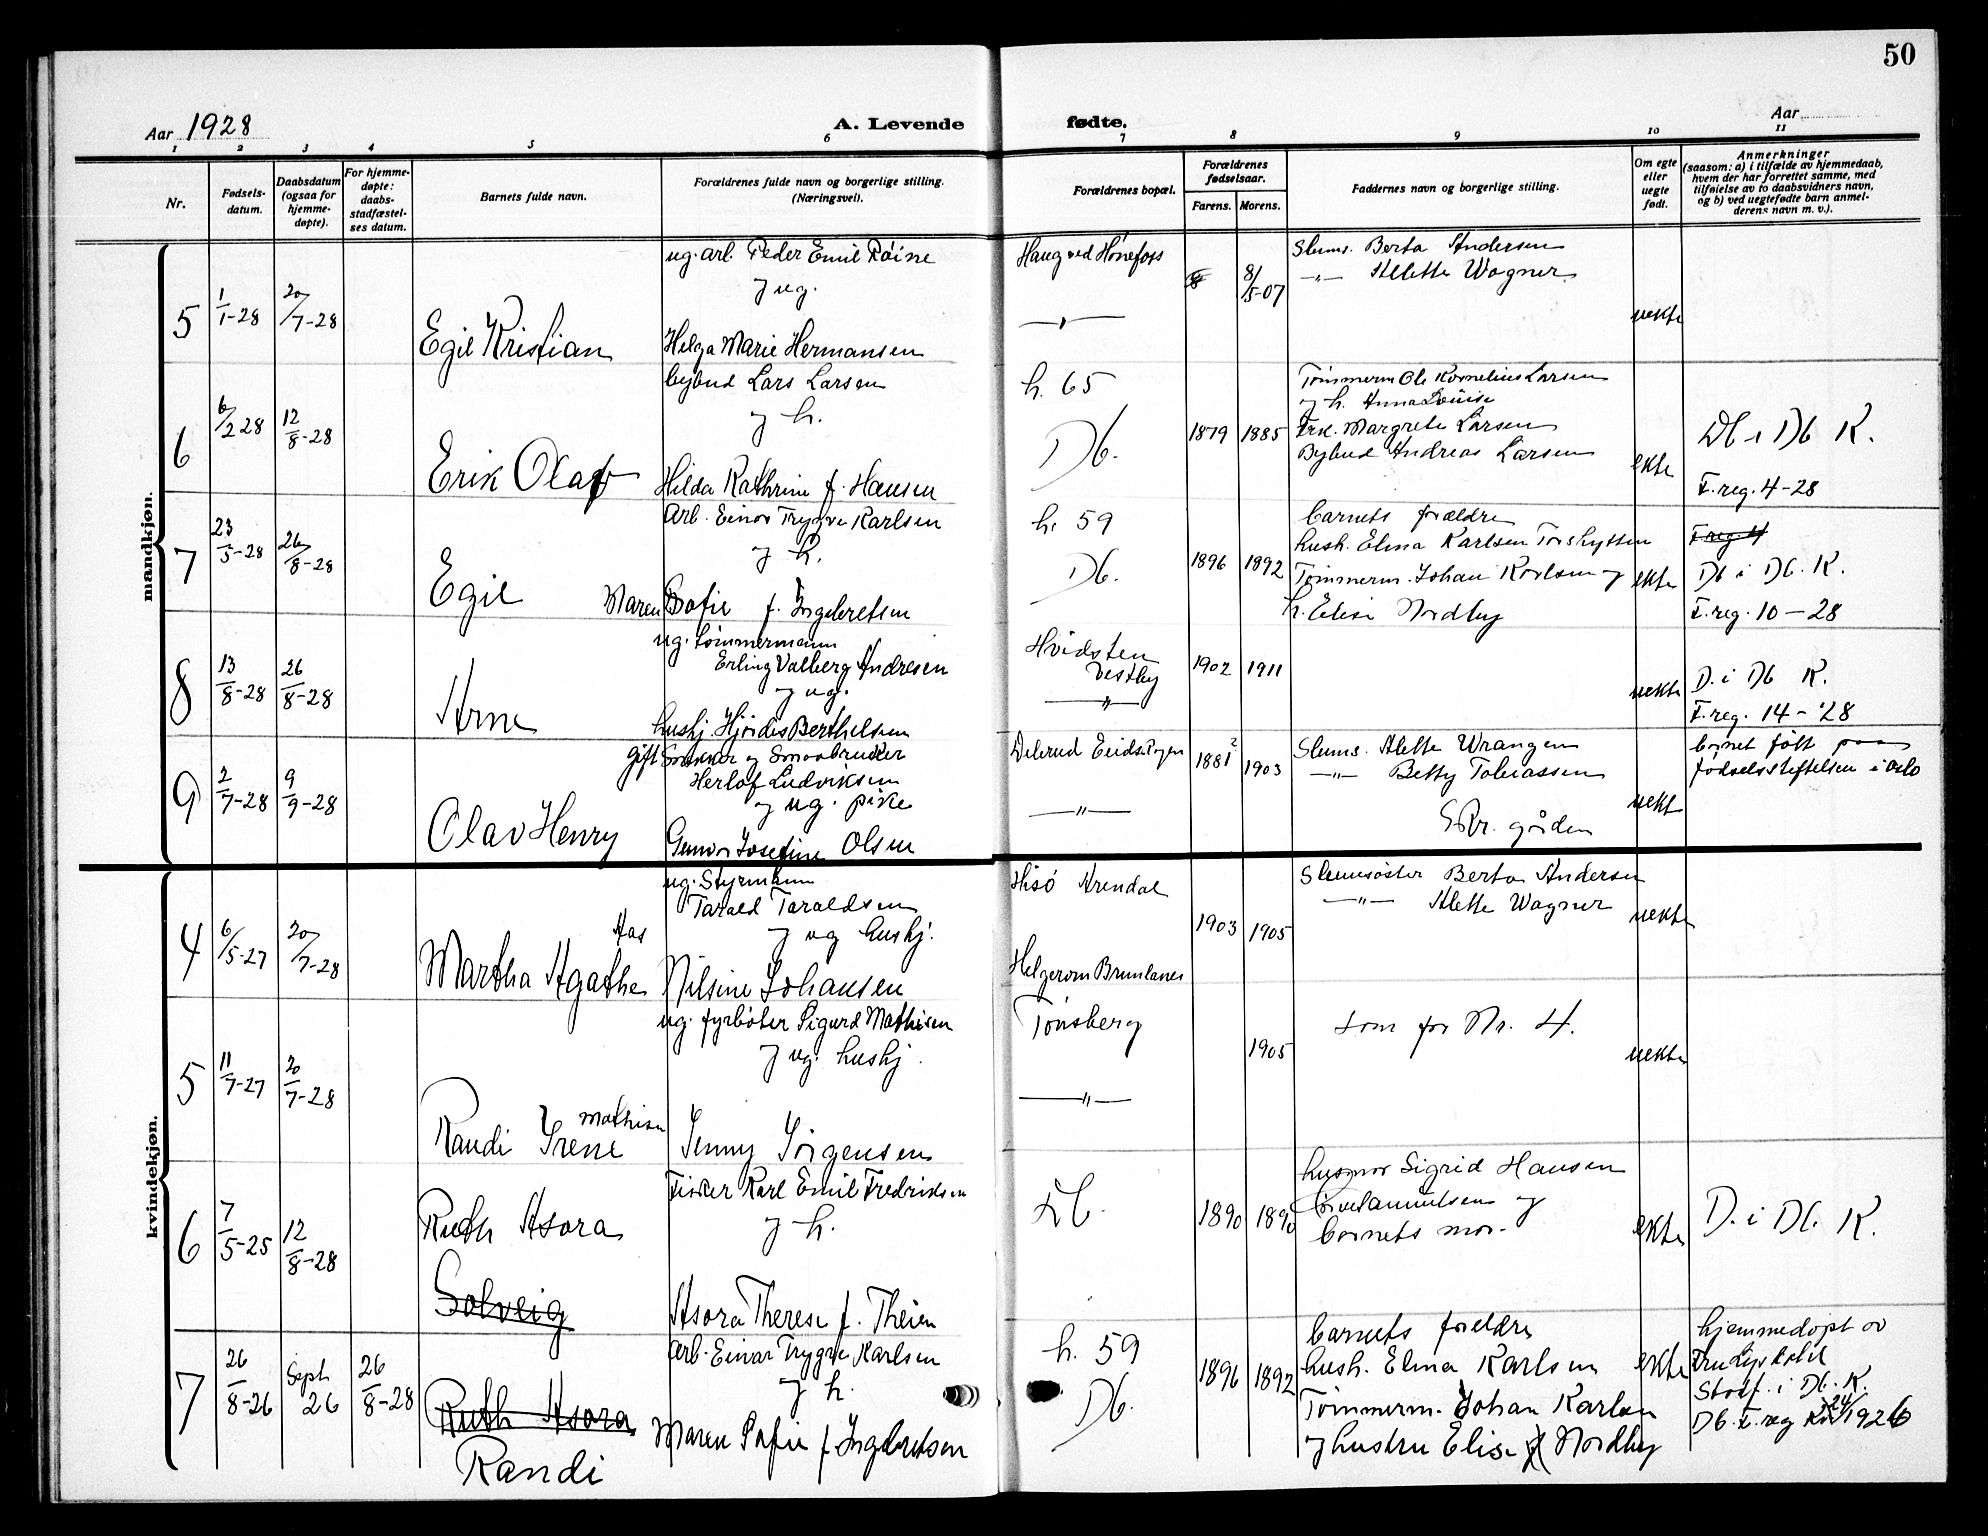 50
Aar 1928
A. Levende
fødte.
Aar
1 2 3 4 5 6 7 8 9 10 11
Nr.
Fødsels-
datum.
Daabsdatum
(ogsaa for
hjemme-
døpte).
For hjemme-
døpte:
daabs-
stadfæstel-
ses datum.
Barnets fulde navn.
Forældrenes fulde navn og borgerlige stilling.
(Næringsvei).
Forældrenes bopæl.
Forældrenes
fødselsaar.
Farens.
Morens.
Faddernes navn og borgerlige stilling.
Om egte
eller
uegte
født.
Anmerkninger
(saasom: a) i tilfælde av hjemmedaab,
hvem der har forrettet samme, med
tilføielse av to daabsvidners navn,
og b) ved uegtefødte barn anmel-
derens navn m. v.).
mandkjøn.
5
1/1-28
20/7-28
Egil Kristian
ug. arb. Peder Emil Röine
og ug.
Helga Marie Hermansen
Haug ved Hönefoss
—"—
8/5-07
Slums. Berta Andersen
—"— Alette Wagner
uekte
6
6/2 28
12/8-28
Erik Olaf
bybud Lars Larsen
og h.
Hilda Kathrine f. Hansen
h. 65
Db.
1879
1885
Tömmerm Ole Kornelius Larsen
og h. Anna Lovise
Frk. Margrete Larsen
Bybud Andreas Larsen
ekte
Db i Db K.
F.reg. 4-28
7
23/5-28
26/8-28
Egil
Arb. Einar Trygve Karlsen
og h.
Maren Sofie f. Ingebretsen
h. 59
Db.
1896
1892
barnets forældre
hush. Elma Karlsen Torshytten
Tömmerm. Johan Karlsen og
h. Elise Nordby
ekte
F.reg 4
Db i Db. K.
F.reg. 10-28
8
13/8-28
26/8-28
Arne
ug. tömmermann
Erling Valberg Andresen
og ug.
hushj. Hjördis Berthelsen
Hvidsten
Vestby
—"—
1902
1911
uekte
D. i Db K.
F.reg. 14-'28
9
2/7-28
9/9-28
Olav Henry
gift Snekker og Smaabruker
Herlof Ludviksen
og ug. pike
Gunvor Josefine Olsen
Delerud Eidskogen
—"—
1881 2
1903
Slums. Alette Wrangen
—"— Betty Tobiassen
gården
uekte
barnet födt paa
födselsstiftelsen i Oslo
kvindekjøn.
4
6/5-27
20/7-28
Aas
Martha Agathe
ug. Styrmann
Tarald Taraldsen
og ug hushj.
Nilsine Johansen
Hisö Arendal
Helgerom Brunlanes
1903
1905
Slumsöster Berta Andersen
—"— Alette Wagner
uekte
5
11/7-27
20/7-28
Mathisen
Randi Irene
ug. fyrböter Sigurd Mathisen
og ug. hushj.
Jenny Jörgensen
Tönsberg
—"—
1905
Som for Nr. 4.
uekte
6
7/5-25
12/8-28
Ruth Asora
Solveig
Fisker Karl Emil Fredriksen
og h.
Asora Therese f. Theien
Db.
1890
1890
husmor Sigrid Hansen
og
barnets mor.
ekte
D. i Db. K.
7
26/8-26
Sept 26
26/8-28
Ruth Asora
Randi
Arb. Einar Trygve Karlsen
og h.
Maren Sofie f. Ingebretsen
h. 59
Db.
1896
1892
barnets foreldre
hush. Elma Karlsen
Tömmerm. Johan Karlsen
og hustru Elise Nordby
ekte
hjemmedöpt av
Fru
Stadf. i Db. K.
Db. F. reg 24/1926